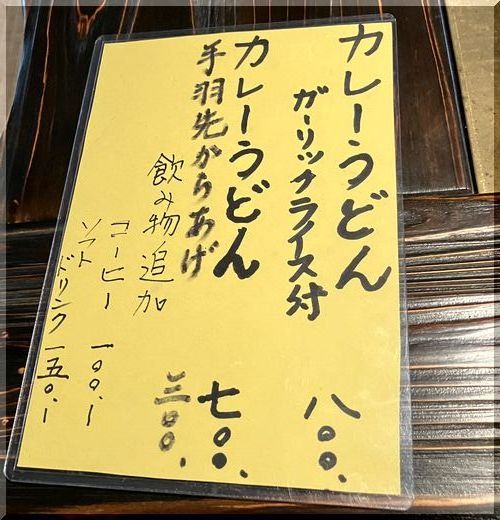 カレーうどん
ガーリックライス付 八〇〇.
カレーうどん 七〇〇.
手羽先からあげ 三〇〇.
飲み物追加
コーヒー 一〇〇.ー
ソフトドリンク 一五〇.ー